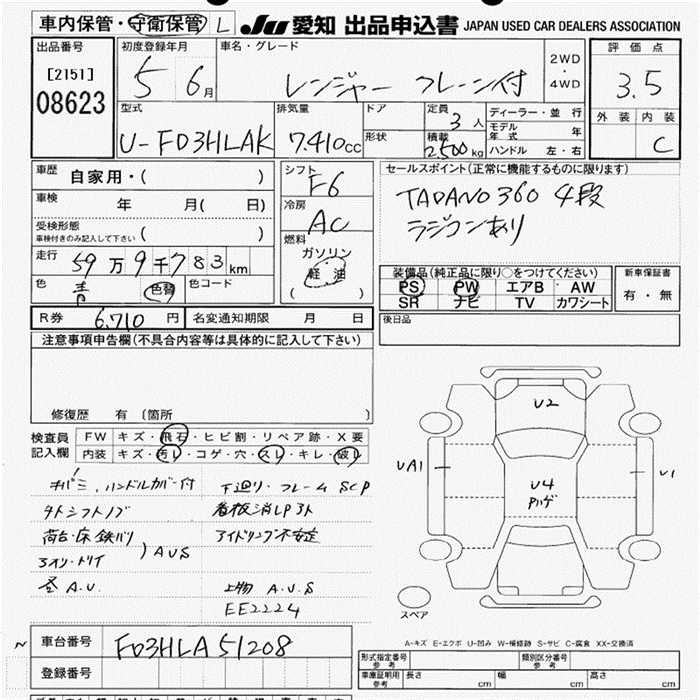 車内保管・守衛保管 L JU 愛知 出品申込書 JAPAN USED CAR DEALERS ASSOCIATION
出品番号
[2151]
08623
初度登録年月
5 6月
車名・グレード
レンジャー クレーン付
2WD
・
4WD
評価点
3.5
型式
U-FD3HLAK
排気量
7.410cc
ドア
形状
定員
3人
積載
2500kg
ディーラー・並行
モデル年式 年
ハンドル 左・右
外装 内装
C
車歴 自家用・( )
車検 年 月( 日)
受検形態
車検付きのみ記入して下さい ( )
走行 59万9千783km
色 青 色替 色コード
シフト
F6
冷房
AC
燃料
ガソリン
軽油
( )
セールスポイント(正常に機能するものに限ります)
TADANO 360 4段
ラジコンあり
装備品(純正品に限り○をつけてください)
PS PW エアB AW
SR ナビ TV カワシート
新車保証書
有・無
R券 6,710円 名変通知期限 月 日
後日品
注意事項申告欄(不具合内容等は具体的に記入して下さい)
修復歴 有 〔箇所 〕
検査員記入欄
FW キズ・飛石・ヒビ割・リペア跡・X要
内装 キズ・汚レ・コゲ・穴・スレ・キレ・破レ
キバミ、ハンドルカバー付
下廻り・フレームSCP
タトシフトノブ
看板消しP3ト
荷台・床鉄バリ
アイドリング不安定
)AUS
A.U.
上物 A.U.S
EE2224
U2
UA1
U4
Pハゲ
U1
スペア
A-キズ E-エクボ U-凹み W-補修跡 S-サビ C-腐食 XX-交換済
車台番号 FD3HLA51208
登録番号
形式指定番号 参考
類別区分番号 参考
車庫証明用 参考 長さ cm 幅 cm 高さ cm